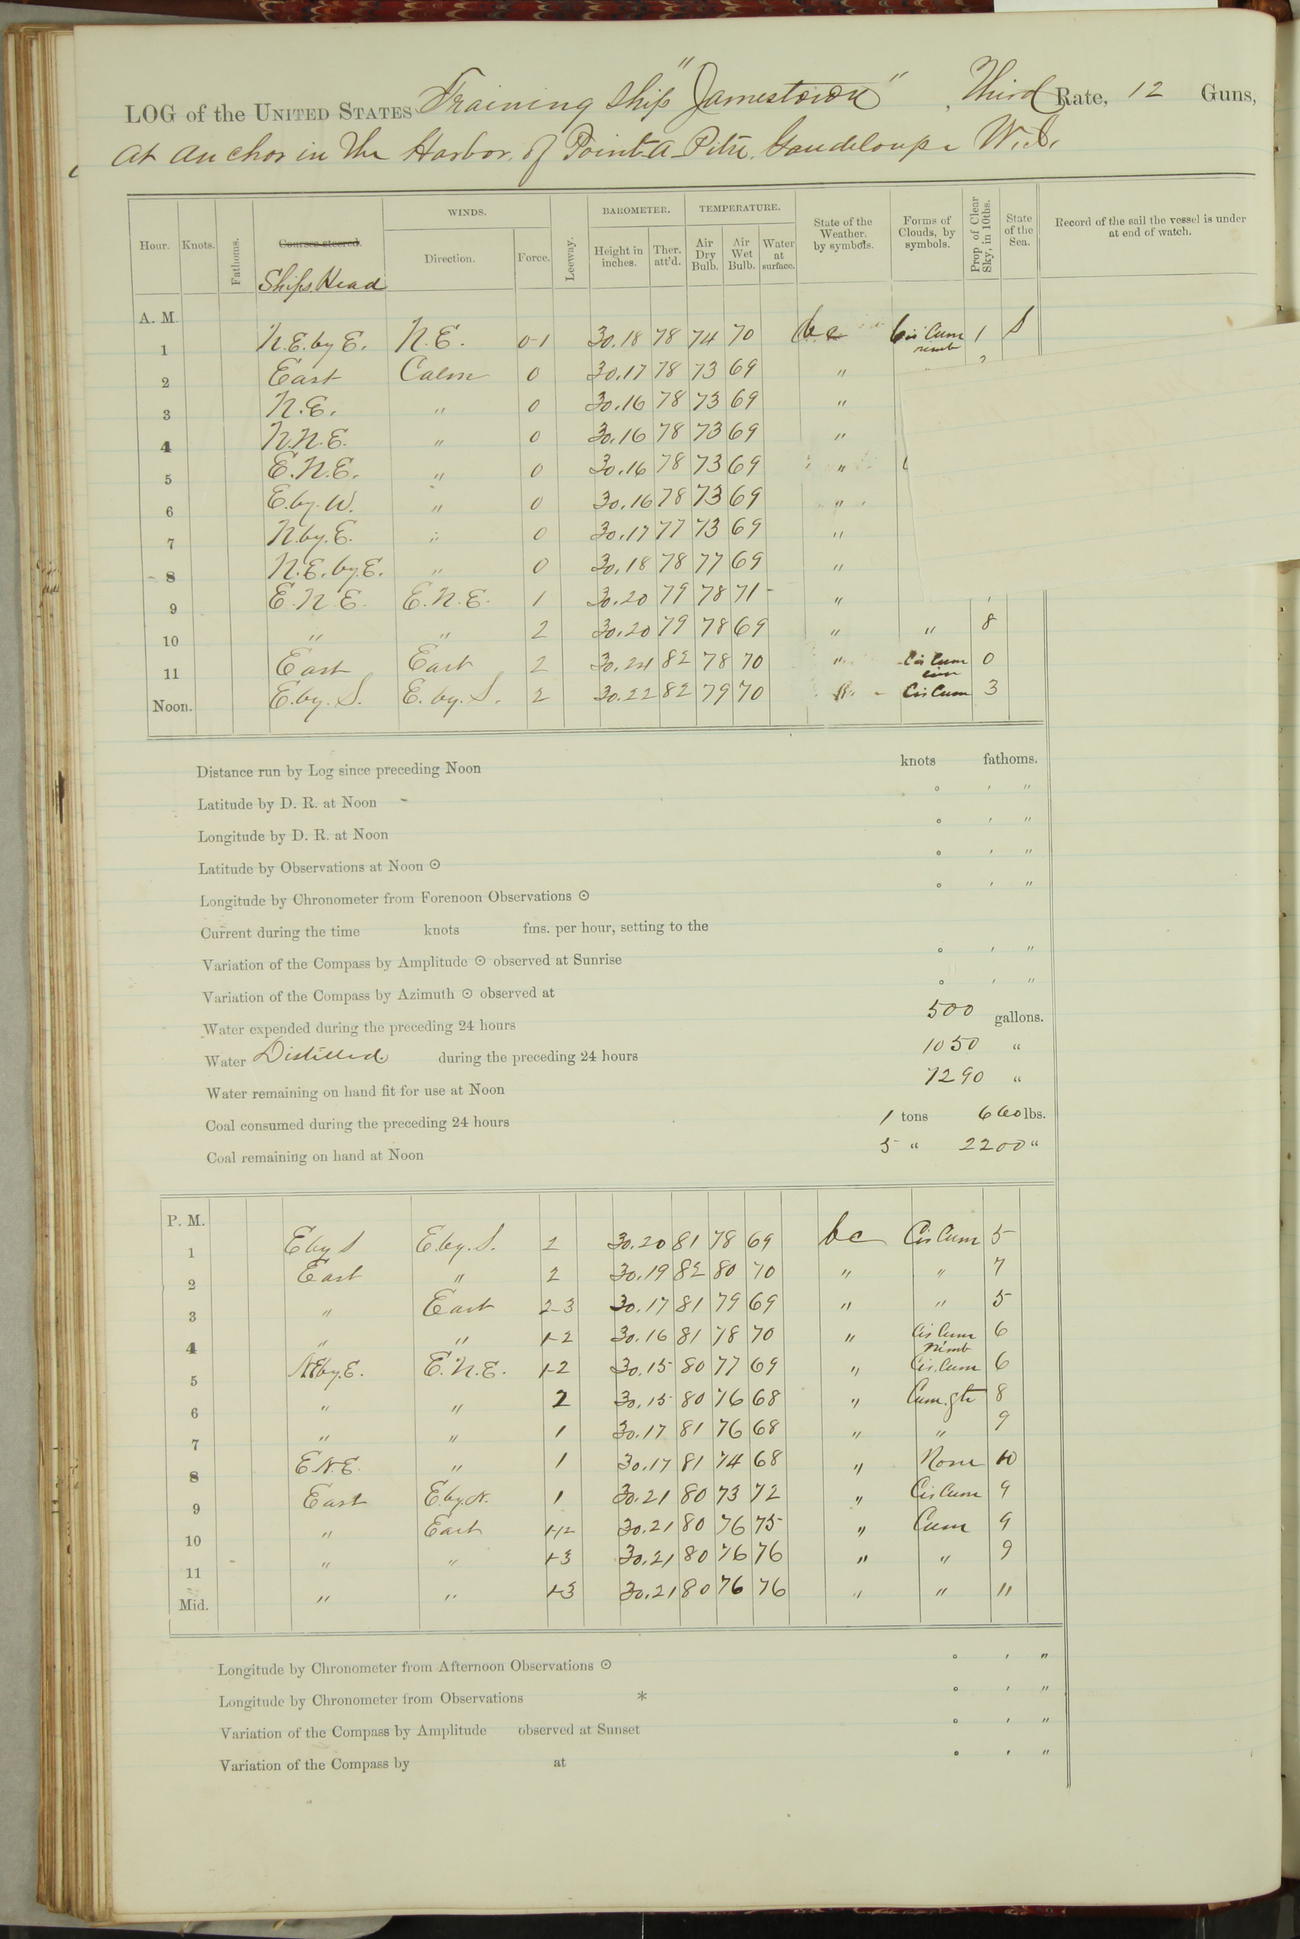 LOG of the UNITED STATES Training Ship "Jamestown", Third Rate, 12 Guns,
At anchor in the Harbor of Point-A-Pitre, Gaudeloupe W.I.
Hour. Knots. Fathoms. Courses steered. Ships Head WINDS. Direction. Force. Leeway. BAROMETER. Height in inches. Ther. att'd. TEMPERATURE. Air Dry Bulb. Air Wet Bulb. Water at surface. State of the Weather, by symbols. Forms of Clouds, by symbols. Prop. of Clear Sky, in 10ths. State of the Sea. Record of the sail the vessel is under at end of watch.
A. M.
1 N.E. by E. N.E. 0-1 30.18 78 74 70 bc Cir Cum nimb 1 S
2 East Calm 0 30.17 78 73 69 "
3 N.E. " 0 30.16 78 73 69 "
4 N.N.E. " 0 30.16 78 73 69 "
5 E.N.E. " 0 30.16 78 73 69 "
6 E. by. W. " 0 30.16 78 73 69 "
7 N. by. E. " 0 30.17 77 73 69 "
8 N.E. by. E. " 0 30.18 78 77 69 "
9 E.N.E. E.N.E. 1 30.20 79 78 71 "
10 " " 2 30.20 79 78 69 " " 8
11 East East 2 30.24 82 78 70 " Cir Cum 0
Noon. E. by. S. E. by. S. 2 30.22 82 79 70 Cir Cum 3
Distance run by Log since preceding Noon knots fathoms.
Latitude by D. R. at Noon ° ' "
Longitude by D. R. at Noon ° ' "
Latitude by Observations at Noon ☉ ° ' "
Longitude by Chronometer from Forenoon Observations ☉ ° ' "
Current during the time knots fms. per hour, setting to the
Variation of the Compass by Amplitude ☉ observed at Sunrise ° ' "
Variation of the Compass by Azimuth ☉ observed at ° ' "
Water expended during the preceding 24 hours 500 gallons.
Water Distilled during the preceding 24 hours 1050 "
Water remaining on hand fit for use at Noon 7290 "
Coal consumed during the preceding 24 hours 1 tons 660 lbs.
Coal remaining on hand at Noon 5 " 2200 "
P. M.
1 E by S E. by. S. 2 30.20 81 78 69 bc Cir Cum 5
2 East " 2 30.19 82 80 70 " " 7
3 " East 2-3 30.17 81 79 69 " " 5
4 " " 1-2 30.16 81 78 70 " Cir Cum nimb 6
5 NE by. E. E.N.E. 1-2 30.15 80 77 69 " Cir. Cum 6
6 " " 2 30.15 80 76 68 " Cum. Str 8
7 " " 1 30.17 81 76 68 " " 9
8 E.N.E. " 1 30.17 81 74 68 " None 10
9 East E. by. N. 1 30.21 80 73 72 " Cir Cum 9
10 " East 1-2 30.21 80 76 75 " Cum 9
11 " " 1-3 30.21 80 76 76 " " 9
Mid. " " 1-3 30.21 80 76 76 " " "
Longitude by Chronometer from Afternoon Observations ☉ ° ' "
Longitude by Chronometer from Observations * ° ' "
Variation of the Compass by Amplitude observed at Sunset ° ' "
Variation of the Compass by at ° ' "